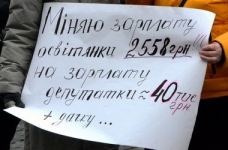 Міняю зарплату
освітянки 2558 грн!!!
на зарплату
депутатки ≈ 40 тис
грн
+ дачу...